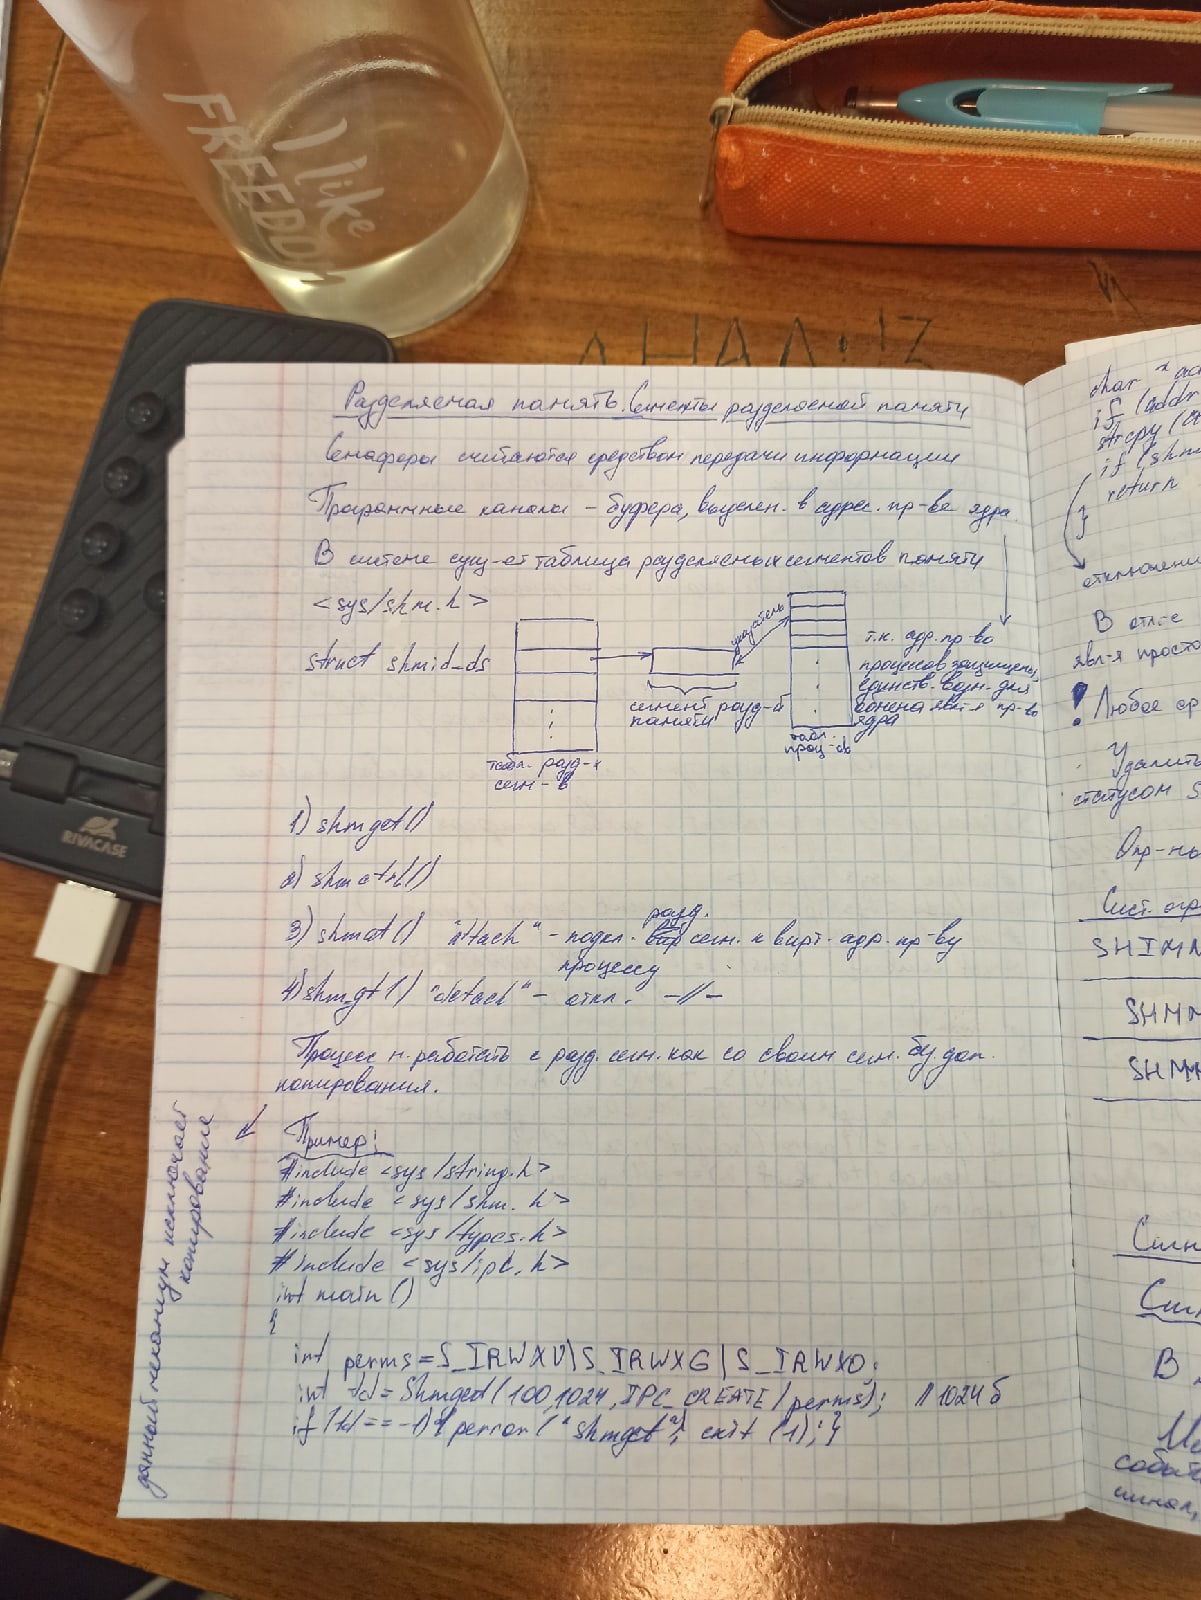 I like
FREEDOM
RIVACASE
АНАЛИЗ
Разделяемая память. Сегменты разделяемой памяти
Семафоры считаются средством передачи информации
Программные каналы – буфера, выделен. в адрес. пр-ве ядра.
В системе сущ-ет таблица разделяемых сегментов памяти
<sys/shm.h>
struct shmid_ds
указатель
т.к. адр. пр-во
процессов защищены,
единств. возм. для
обмена явл-я пр-во
ядра
сегмент разд-й
памяти
табл. разд-х
сегм-в
табл.
проц-ов
1) shmget()
2) shmctl()
разд.
3) shmat() "attach" – подкл. сегм. к вирт. адр. пр-ву
процессу
4) shmgt() "detach" – откл. –//–
Процесс м. работать с разд. сегм. как со своим сегм. бу. доп.
копирования.
данный механизм исключает
копирование
Пример:
#include <sys/string.h>
#include <sys/shm.h>
#include <sys/types.h>
#include <sys/ipc.h>
int main()
{
int perms = S_IRWXU|S_IRWXG|S_IRWXO;
int fd = Shmget(100,1024,IPC_CREATE/perms); //1024 б
if (fd == -1) { perror ("shmget"); exit (1); }
char *ad
if (addr
strcpy(a
if (shm
return
}
отключени
В отл-е
явл-я просто
! Любое ср
Удалить
статусом S
Опр-ны
Сист. огр
SHIMN
SHMM
SHMM
Сигн
Сигн
В
событ
сигнал,